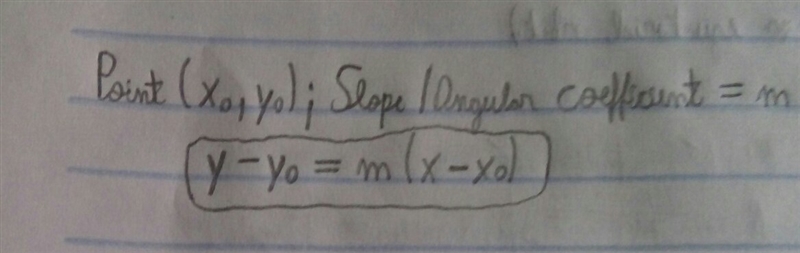 Point (x₀, y₀); Slope / Angular coefficient = m
y - y₀ = m (x - x₀)